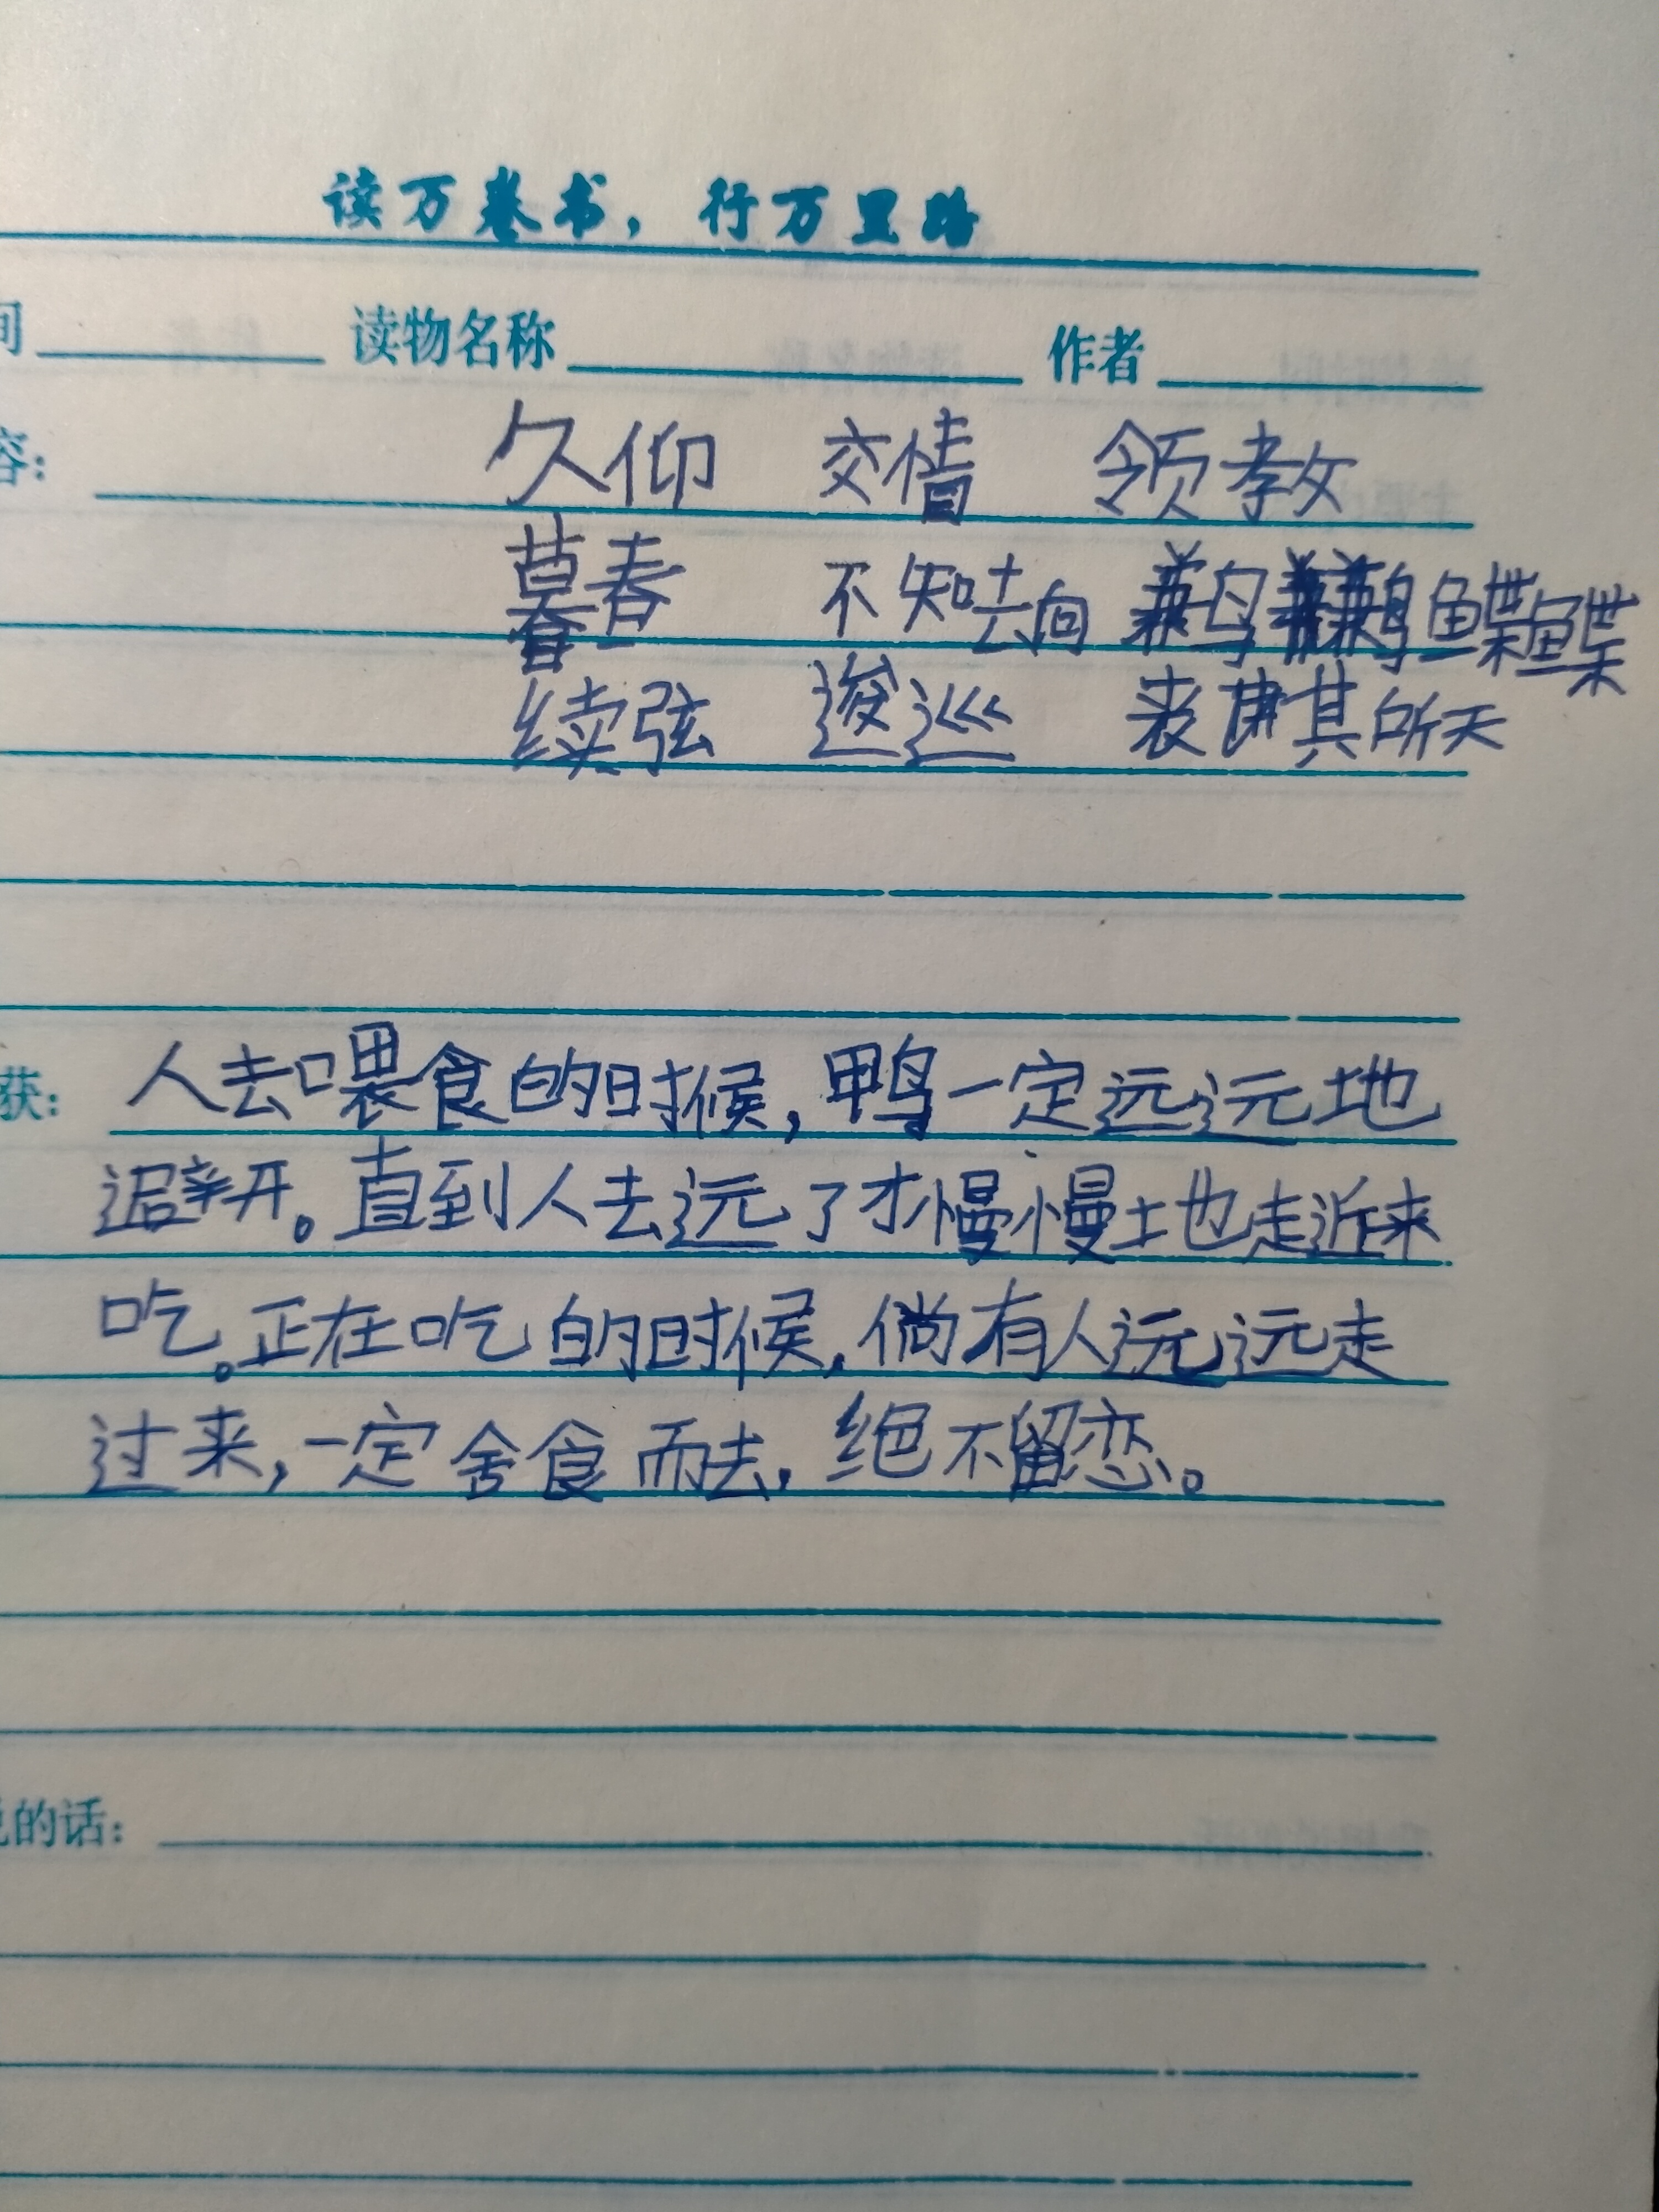 读万卷书，行万里路
间 读物名称 作者
容： 久仰 交情 领教
暮春 不知去向 鹣鹣鲽鲽
续弦 逡巡 丧其所天
获： 人去喂食的时候，鸭一定远远地
避开。直到人去远了才慢慢地走近来
吃。正在吃的时候，倘有人远远走
过来，一定舍食而去，绝不留恋。
说的话：